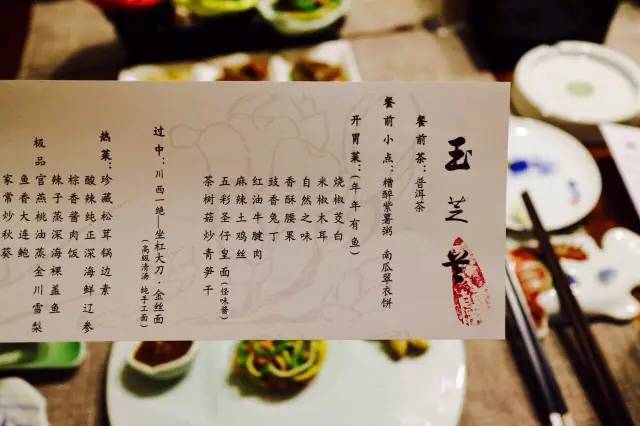 玉芝兰
餐前茶：普洱茶
餐前小点：糟醉紫薯粥 南瓜翠衣饼
开胃菜：（年年有鱼）
烧椒茭白
米椒木耳
自然之味
香酥腰果
豉香兔丁
红油牛腱肉
麻辣土鸡丝
五彩圣仔皇面（怪味酱）
茶树菇炒青笋干
过中：川西一绝—坐杠大刀·金丝面
（高级清汤 纯手工面）
热菜：珍藏松茸锅边素
酸辣纯正深海鲜辽参
棕香酱肉饭
辣子蒸深海裸盖鱼
极品官燕桃油蒸金川雪梨
鱼香大连鲍
家常炒秋葵